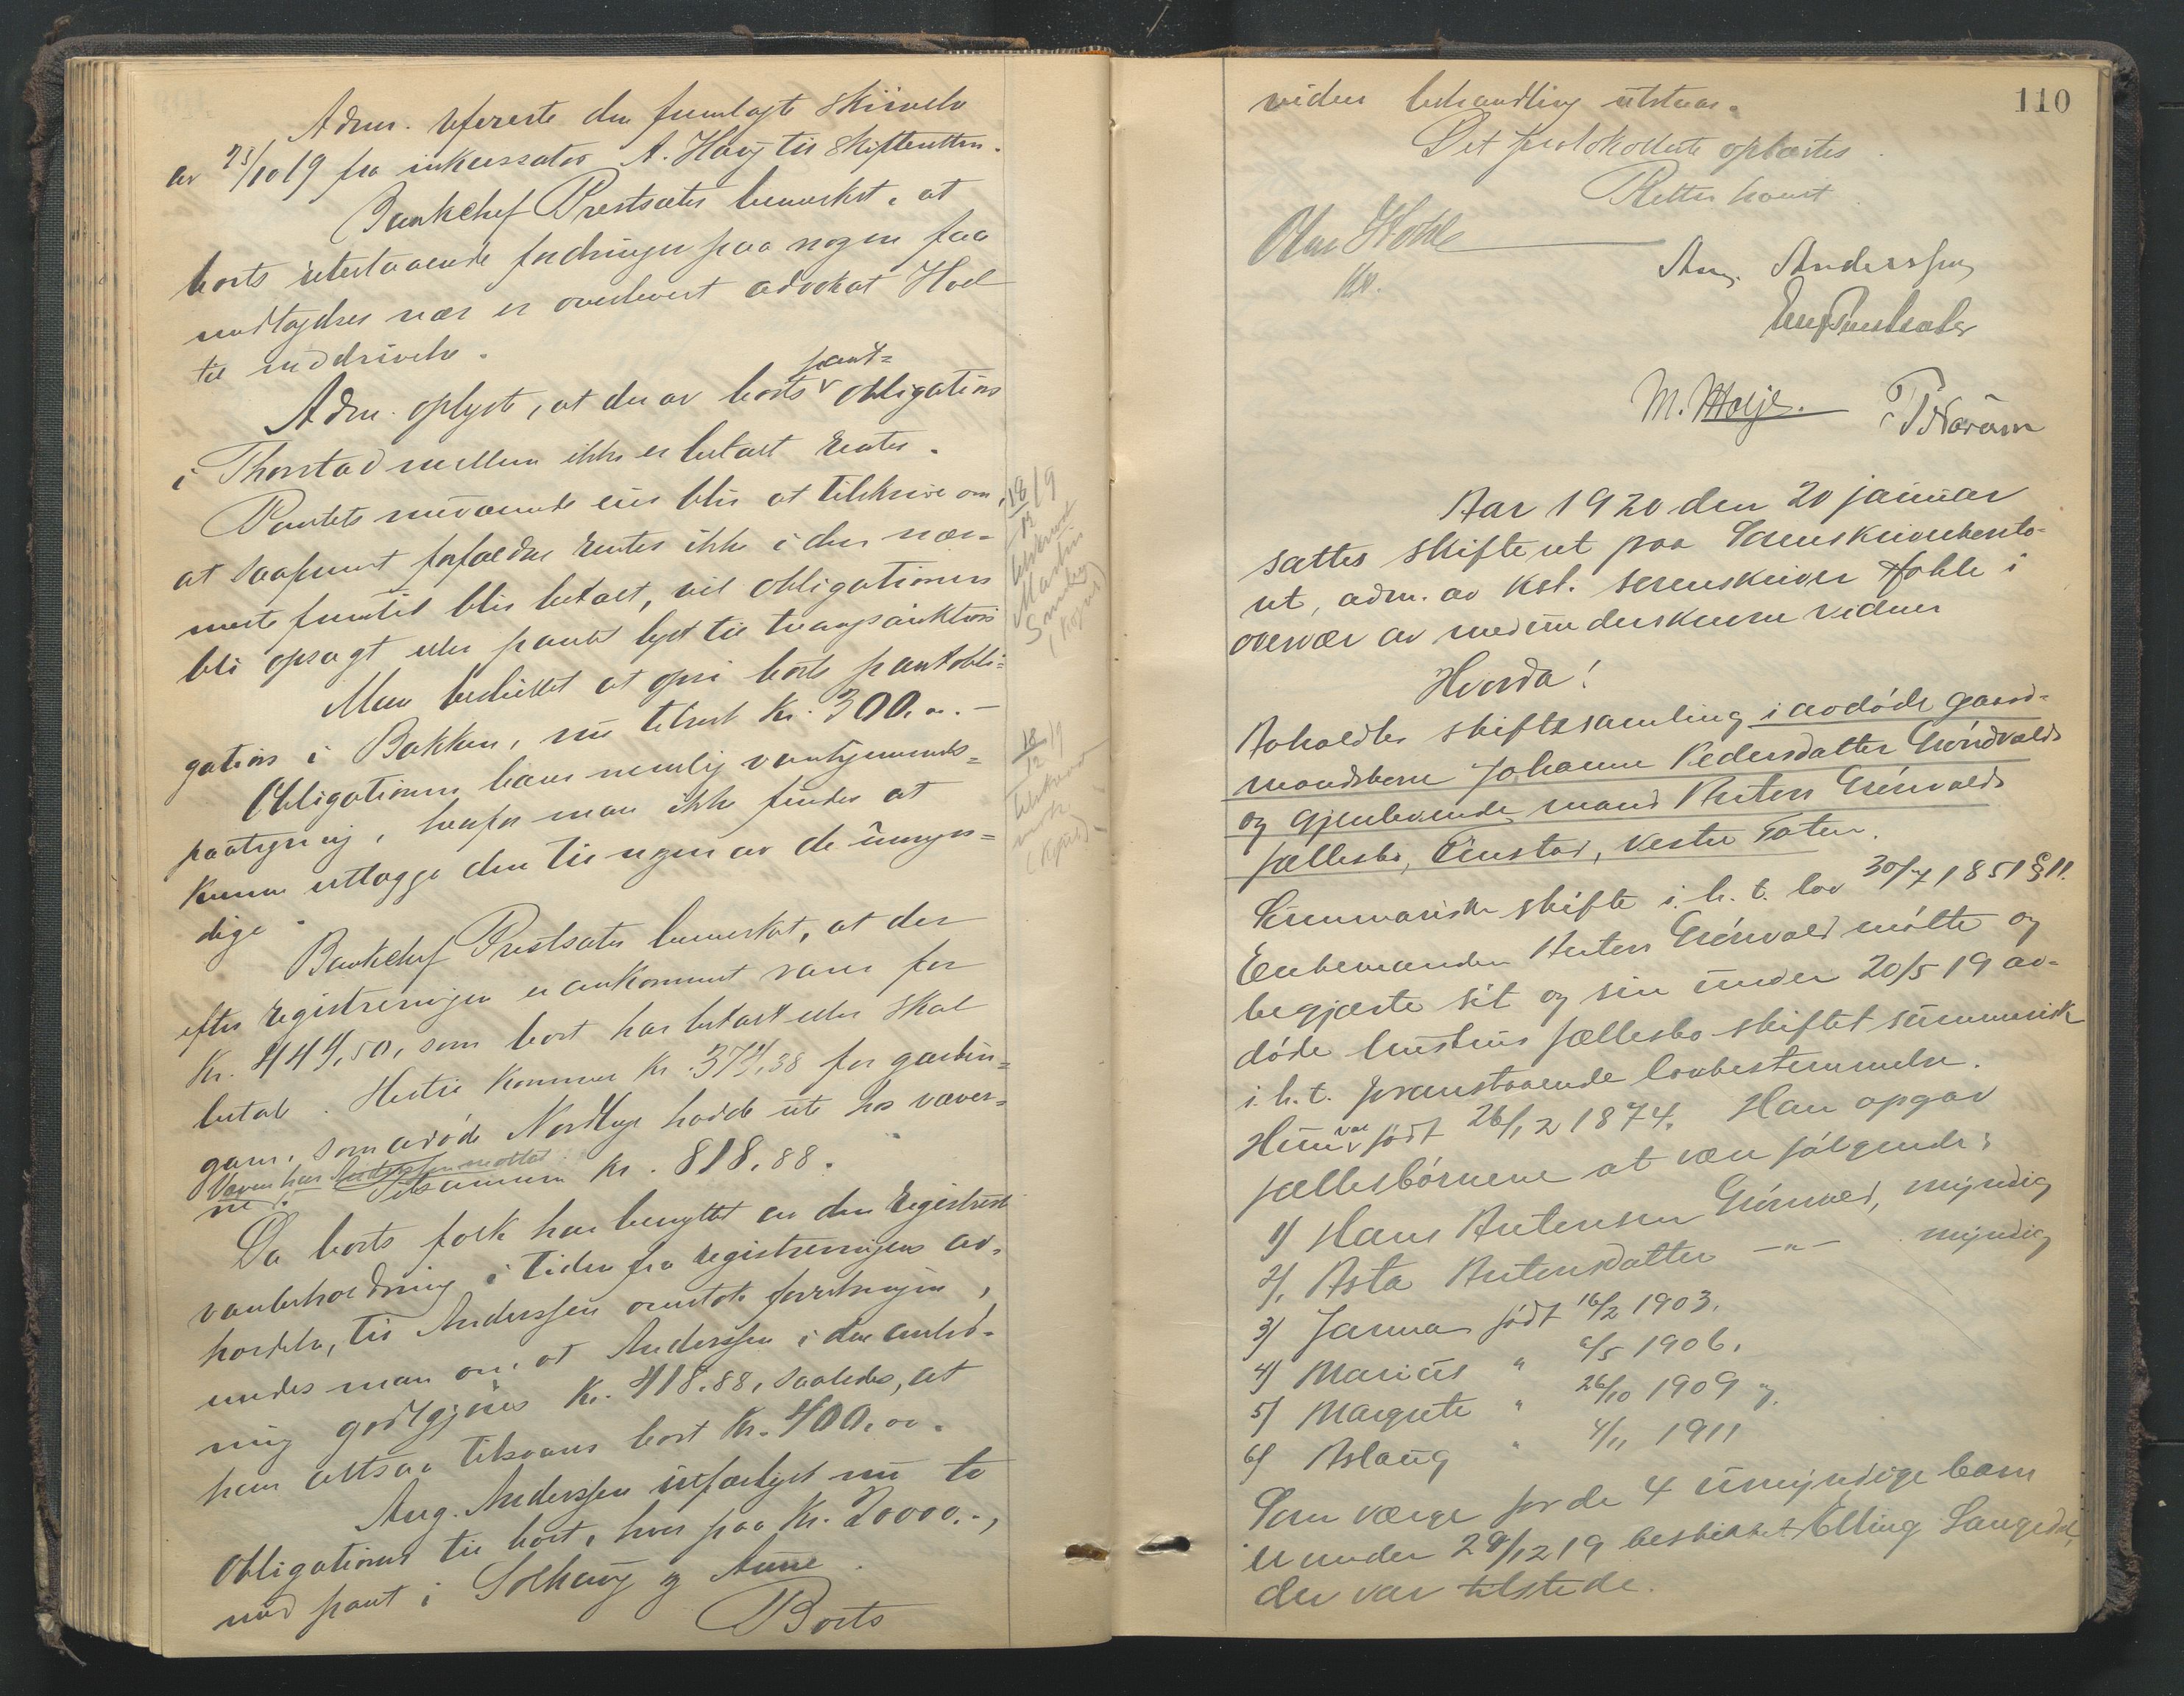 Adm. refererte den fremlagte skrivelse
av 23/10 19 fra inkassator A. Haug til skifteretten.
Bankchef Prestsæter bemerket, at
boets utestaaende fordringer paa nogen faa
undtagelser nær er overlevert advokat Hoel
til inddrivelse.
Adm. oplyste, at der av boets pant=
obligation
i Thorstad mellem ikke er betalt renter.
Pantets nuværende eier blir at tilskrive om,
at saafremt forfaldne renter ikke i den nær-
meste fremtid blir betalt, vil obligationen
bli opsagt eller pantet lyst til tvangsauktion
Man besluttet at opgi boets pantobli=
gation i Bakken, nu tilrest kr. 300.00.-
Obligationen har nemlig
paategning, hvorfor man ikke finder at
kunne utlægge den til nogen av de umyn=
dige.
Bankchef Prestsæter bemerket, at der
efter registreringen er ankommet varer for
kr. 444,50, som boet har betalt eller skal
betale. Hertil kommer kr. 374,38 for
garn, som avdøde Nordlye hadde ute hos væver-
Varen har Anderssen mottat.
ne. Tilsammen kr. 818.88.
Da boets folk har benyttet av den registrerte
varebeholdning i tiden fra registreringens av-
holdelse, til Anderssen overtok forretningen,
enedes man om, at Anderssen i den anled-
ning godtgjøres kr. 418.88, saaledes, at
han altsaa tilsvarer boet kr. 400.00.
Aug. Anderssen utfærdiget nu to
obligationer til boet, hver paa kr. 20000.-,
med pant i Solhaug og
Boets
18/12 19
tilskrevet
Martin
(Kopi)
18/12 19
tilskrevet
110
videre behandling utstaar.
Det protokollerte oplæstes.
Retten hævet
Olav Hohle
kst.
Aug. Anderssen
M. Hoije.
Aar 1920 den 20 januar
sattes skifteret paa Sorenskriverkonto-
ret, adm. av kst. sorenskriver Hohle i
overvær av medunderskrevne vidner
Hvorda!
Avholdtes skiftesamling i avdøde gaard-
mandskone Johanne Pedersdatter Grönvolds
og gjenlevende mand Anton Grönvolds
fællesbo, Einstad, Vestre Toten.
Summarisk skifte i. h. t. lov 30/7 1851 § 11.
Enkemanden Anton Grönvold møtte og
begjærte sit og sin under 20/5 19 av-
døde hustrus fællesbo skiftet summarisk
i. h. t. foranstaaende lovbestemmelse.
Hun var født 26/12 1874. Han opgav
fællesbörnene at være følgende:
1) Hans Antonsen Grönvold, myndig
2) Asta Antonsdatter -"- myndig
3) Janna født 16/2 1903.
4) Marius " 6/5 1906.
5) Margrete " 26/10 1909 og
6) Aslaug " 4/11 1911
Som værge for de 4 umyndige barn
er under 29/12 19 beskikket Elling
der var tilstede.